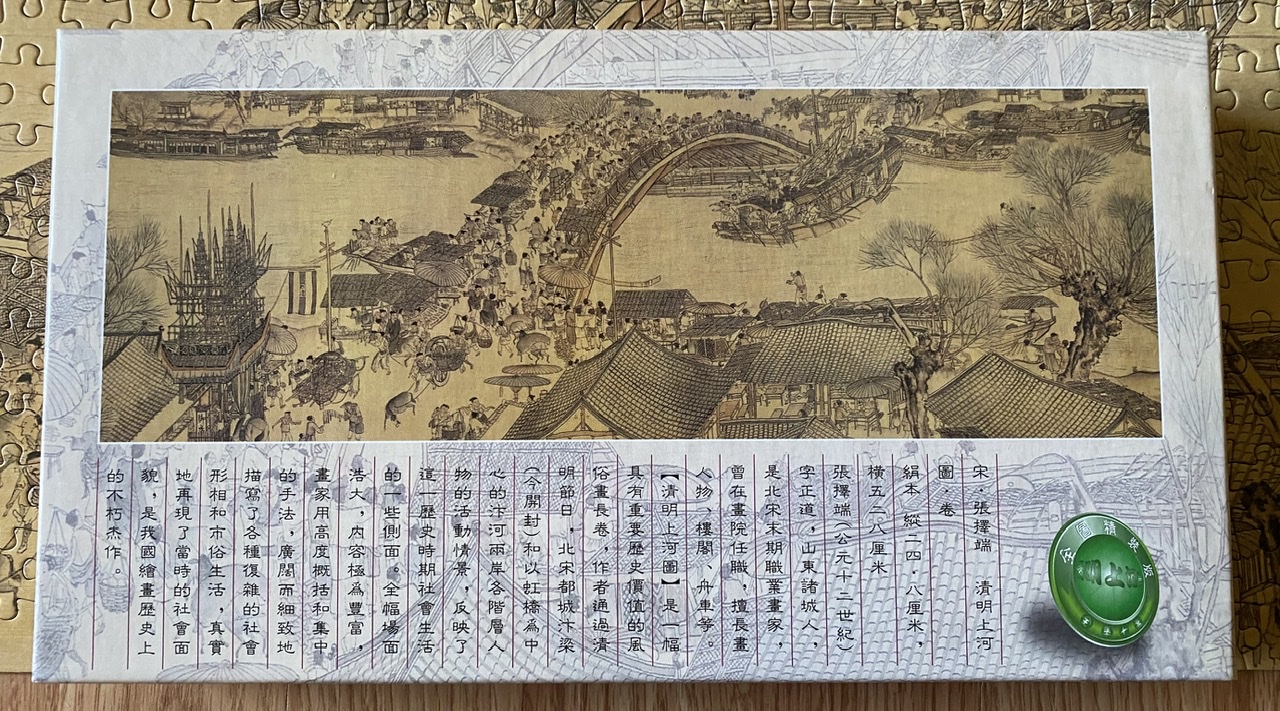 宋·張擇端　清明上河
圖·卷
絹本　縱二四·八厘米，
橫五二八厘米
張擇端（公元十二世紀）
字正道，山東諸城人，
是北宋末期職業畫家，
曾在畫院任職，擅長畫
人物、樓閣、舟車等。
【清明上河圖】是一幅
具有重要歷史價值的風
俗畫長卷，作者通過清
明節日，北宋都城汴梁
（今開封）和以虹橋為中
心的汴河兩岸各階層人
物的活動情景，反映了
這一歷史時期社會生活
的一些側面。全幅場面
浩大，內容極為豐富，
畫家用高度概括和集中
的手法，廣闊而細致地
描寫了各種復雜的社會
形相和市俗生活，真實
地再現了當時的社會面
貌，是我國繪畫歷史上
的不朽杰作。
全圖精裝版